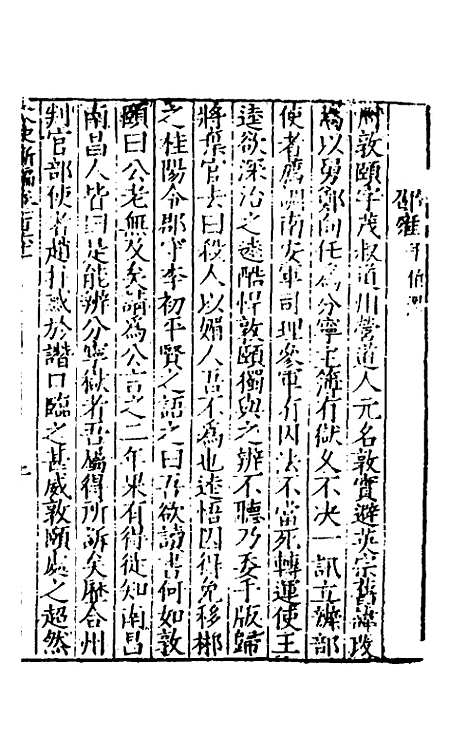 邵雍子伯温
周敦頤字茂叔道州營道人元名敦實避英宗舊諱改
焉以舅鄭向任為分寧主簿有獄久不决一訊立辨部
使者薦調南安軍司理參軍有囚法不當死轉運使王
逵欲深治之逵酷悍敦頤獨與之辨不聽乃委手版歸
將棄官去曰殺人以媚人吾不為也逵悟囚得免移郴
之桂陽令郡守李初平賢之語之曰吾欲讀書何如敦
頤曰公老無及矣請為公言之二年果有得徙知南昌
南昌人皆曰是能辨分寧獄者吾屬得所訴矣歷合州
判官部使者趙抃惑於譖口臨之甚威敦頤處之超然
史新編卷